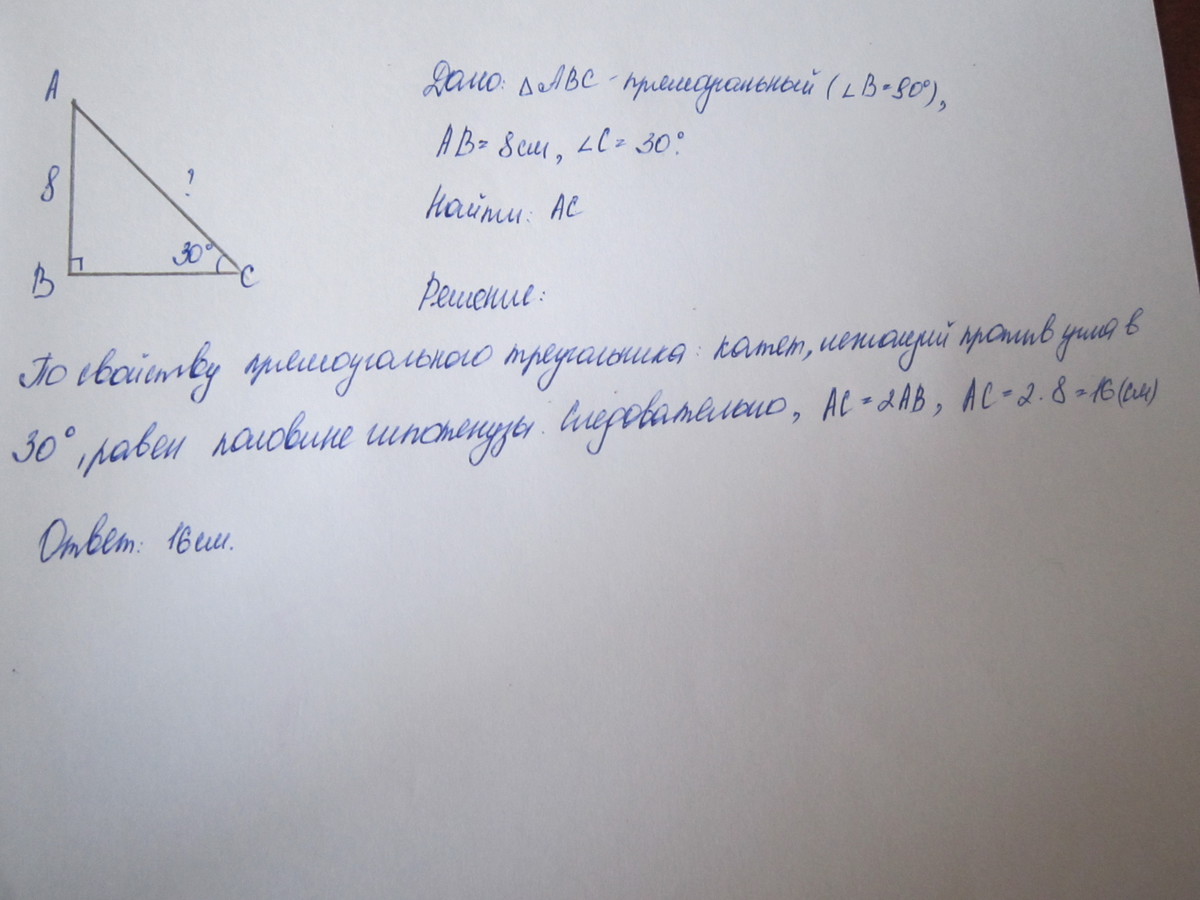 A
8
?
B
30°
C
Дано: △ABC - прямоугольный (∠B=90°),
AB= 8см, ∠C= 30°.
Найти: AC
Решение:
По свойству прямоугольного треугольника: катет, лежащий против угла в
30°, равен половине гипотенузы. Следовательно, AC=2AB, AC=2·8=16(см)
Ответ: 16см.